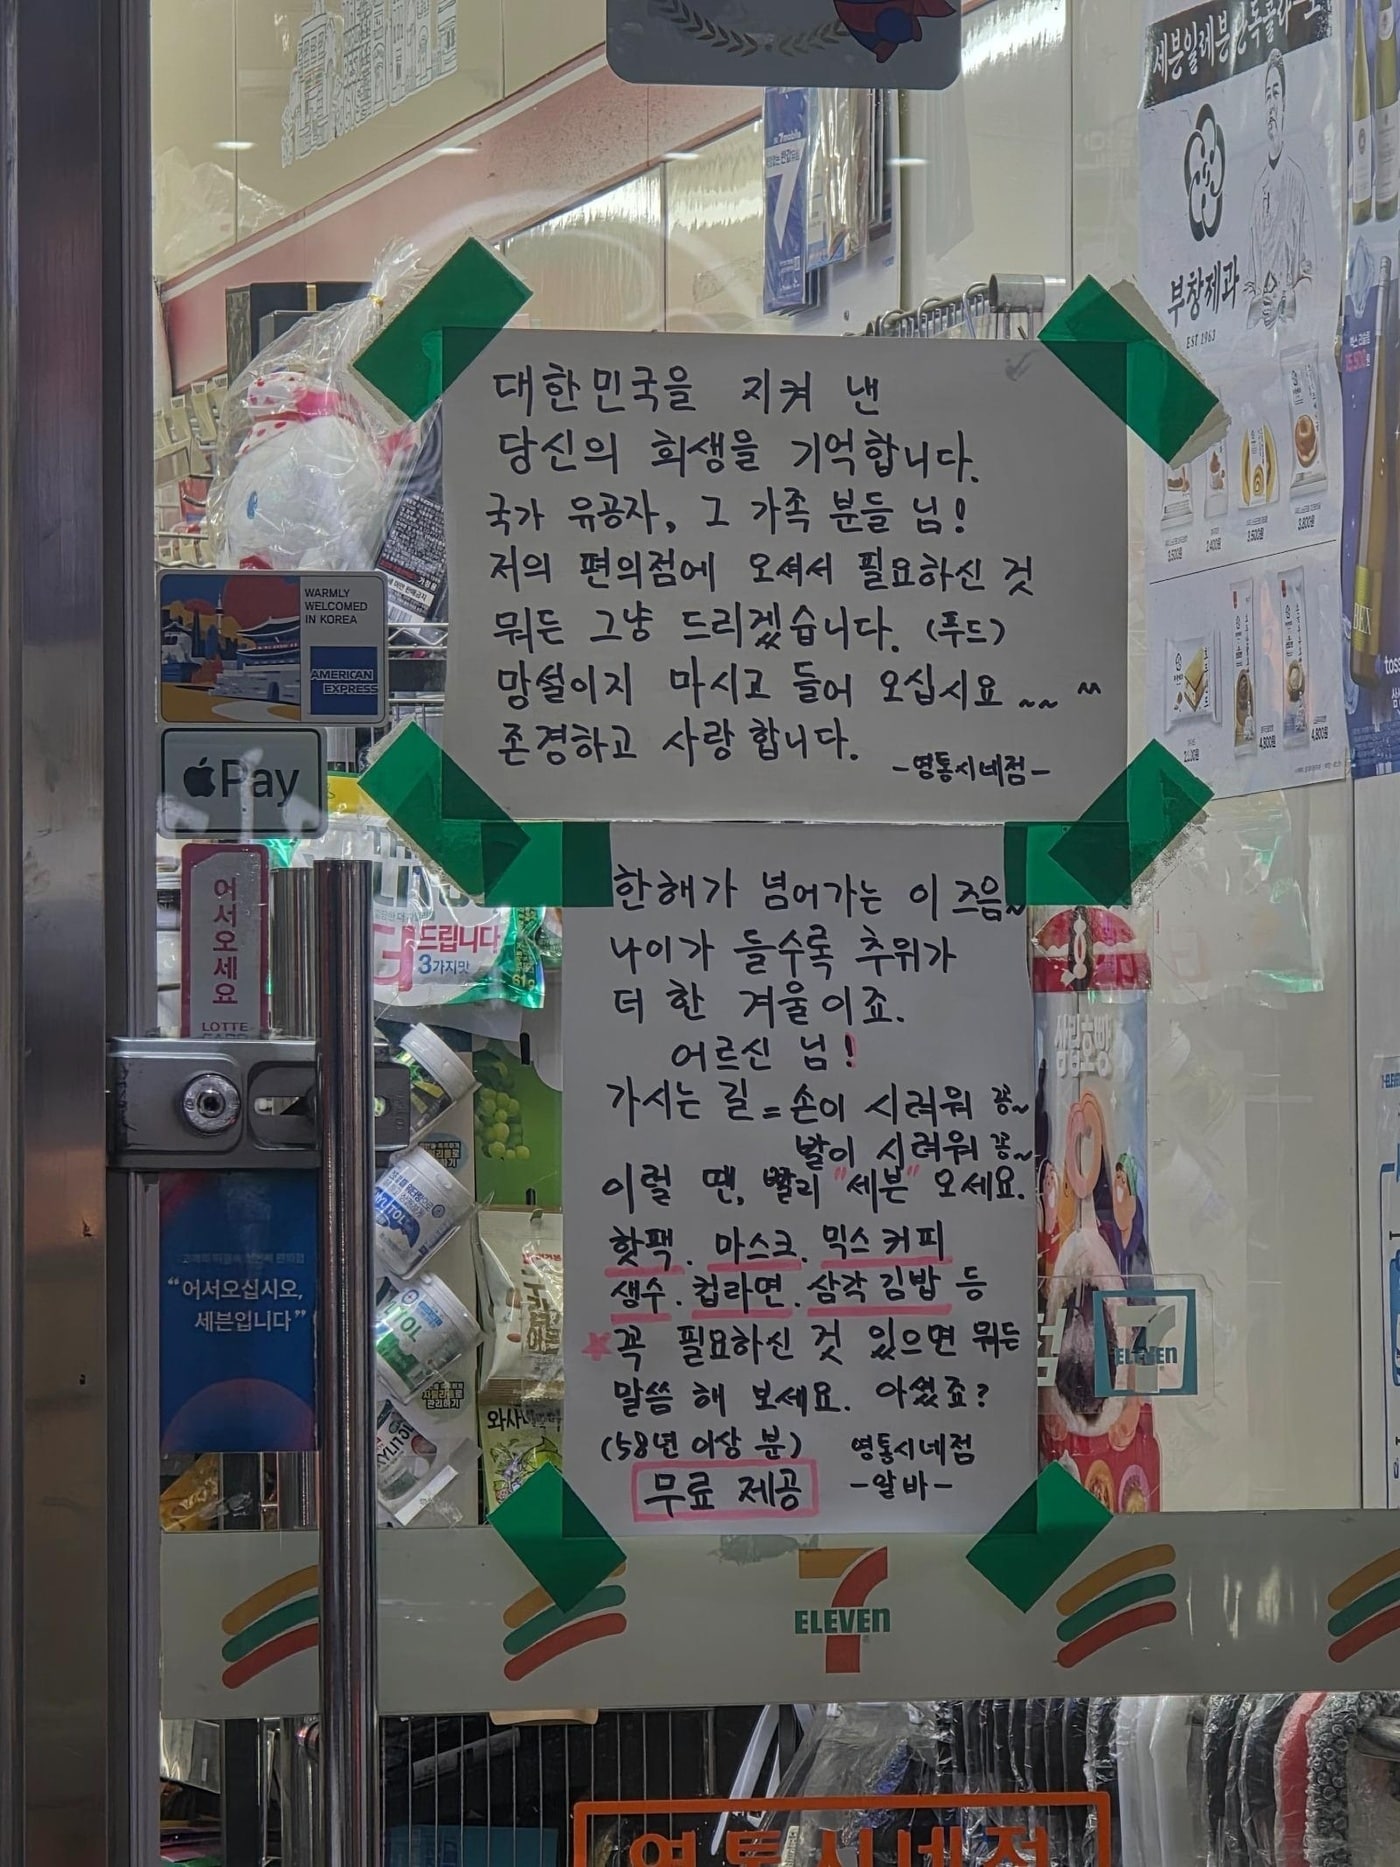 세븐일레븐
7mobile
7
부창제과
EST 1963
3,500원
2,400원
3,500원
3,800원
4,800원
4,800원
대한민국을 지켜 낸
당신의 희생을 기억합니다.
국가 유공자, 그 가족 분들 님!
저의 편의점에 오셔서 필요하신 것
뭐든 그냥 드리겠습니다. (푸드)
망설이지 마시고 들어 오십시요~~ ^^
존경하고 사랑합니다.
-영통시네점-
WARMLY
WELCOMED
IN KOREA
AMERICAN
EXPRESS
Pay
어서오세요
LOTTE
더드립니다
3가지맛
한해가 넘어가는 이 즈음~
나이가 들수록 추위가
더 한 겨울이죠.
어르신 님!
가시는 길 = 손이 시려워 꽁~
발이 시려워 꽁~
이럴 땐, 빨리 "세븐" 오세요.
핫팩. 마스크. 믹스커피
생수. 컵라면. 삼각김밥 등
꼭 필요하신 것 있으면 뭐든
말씀 해 보세요. 아셨죠?
(58년 이상 분) 영통시네점
무료 제공 -알바-
삼립호빵
“어서오십시오,
세븐입니다”
ELEVEN
7
ELEVEN
영통시네점